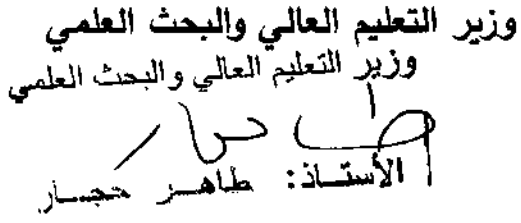 وزير التعليم العالي والبحث العلمي
وزير التعليم العالي والبحث العلمي
الأستاذ: طاهر حجار